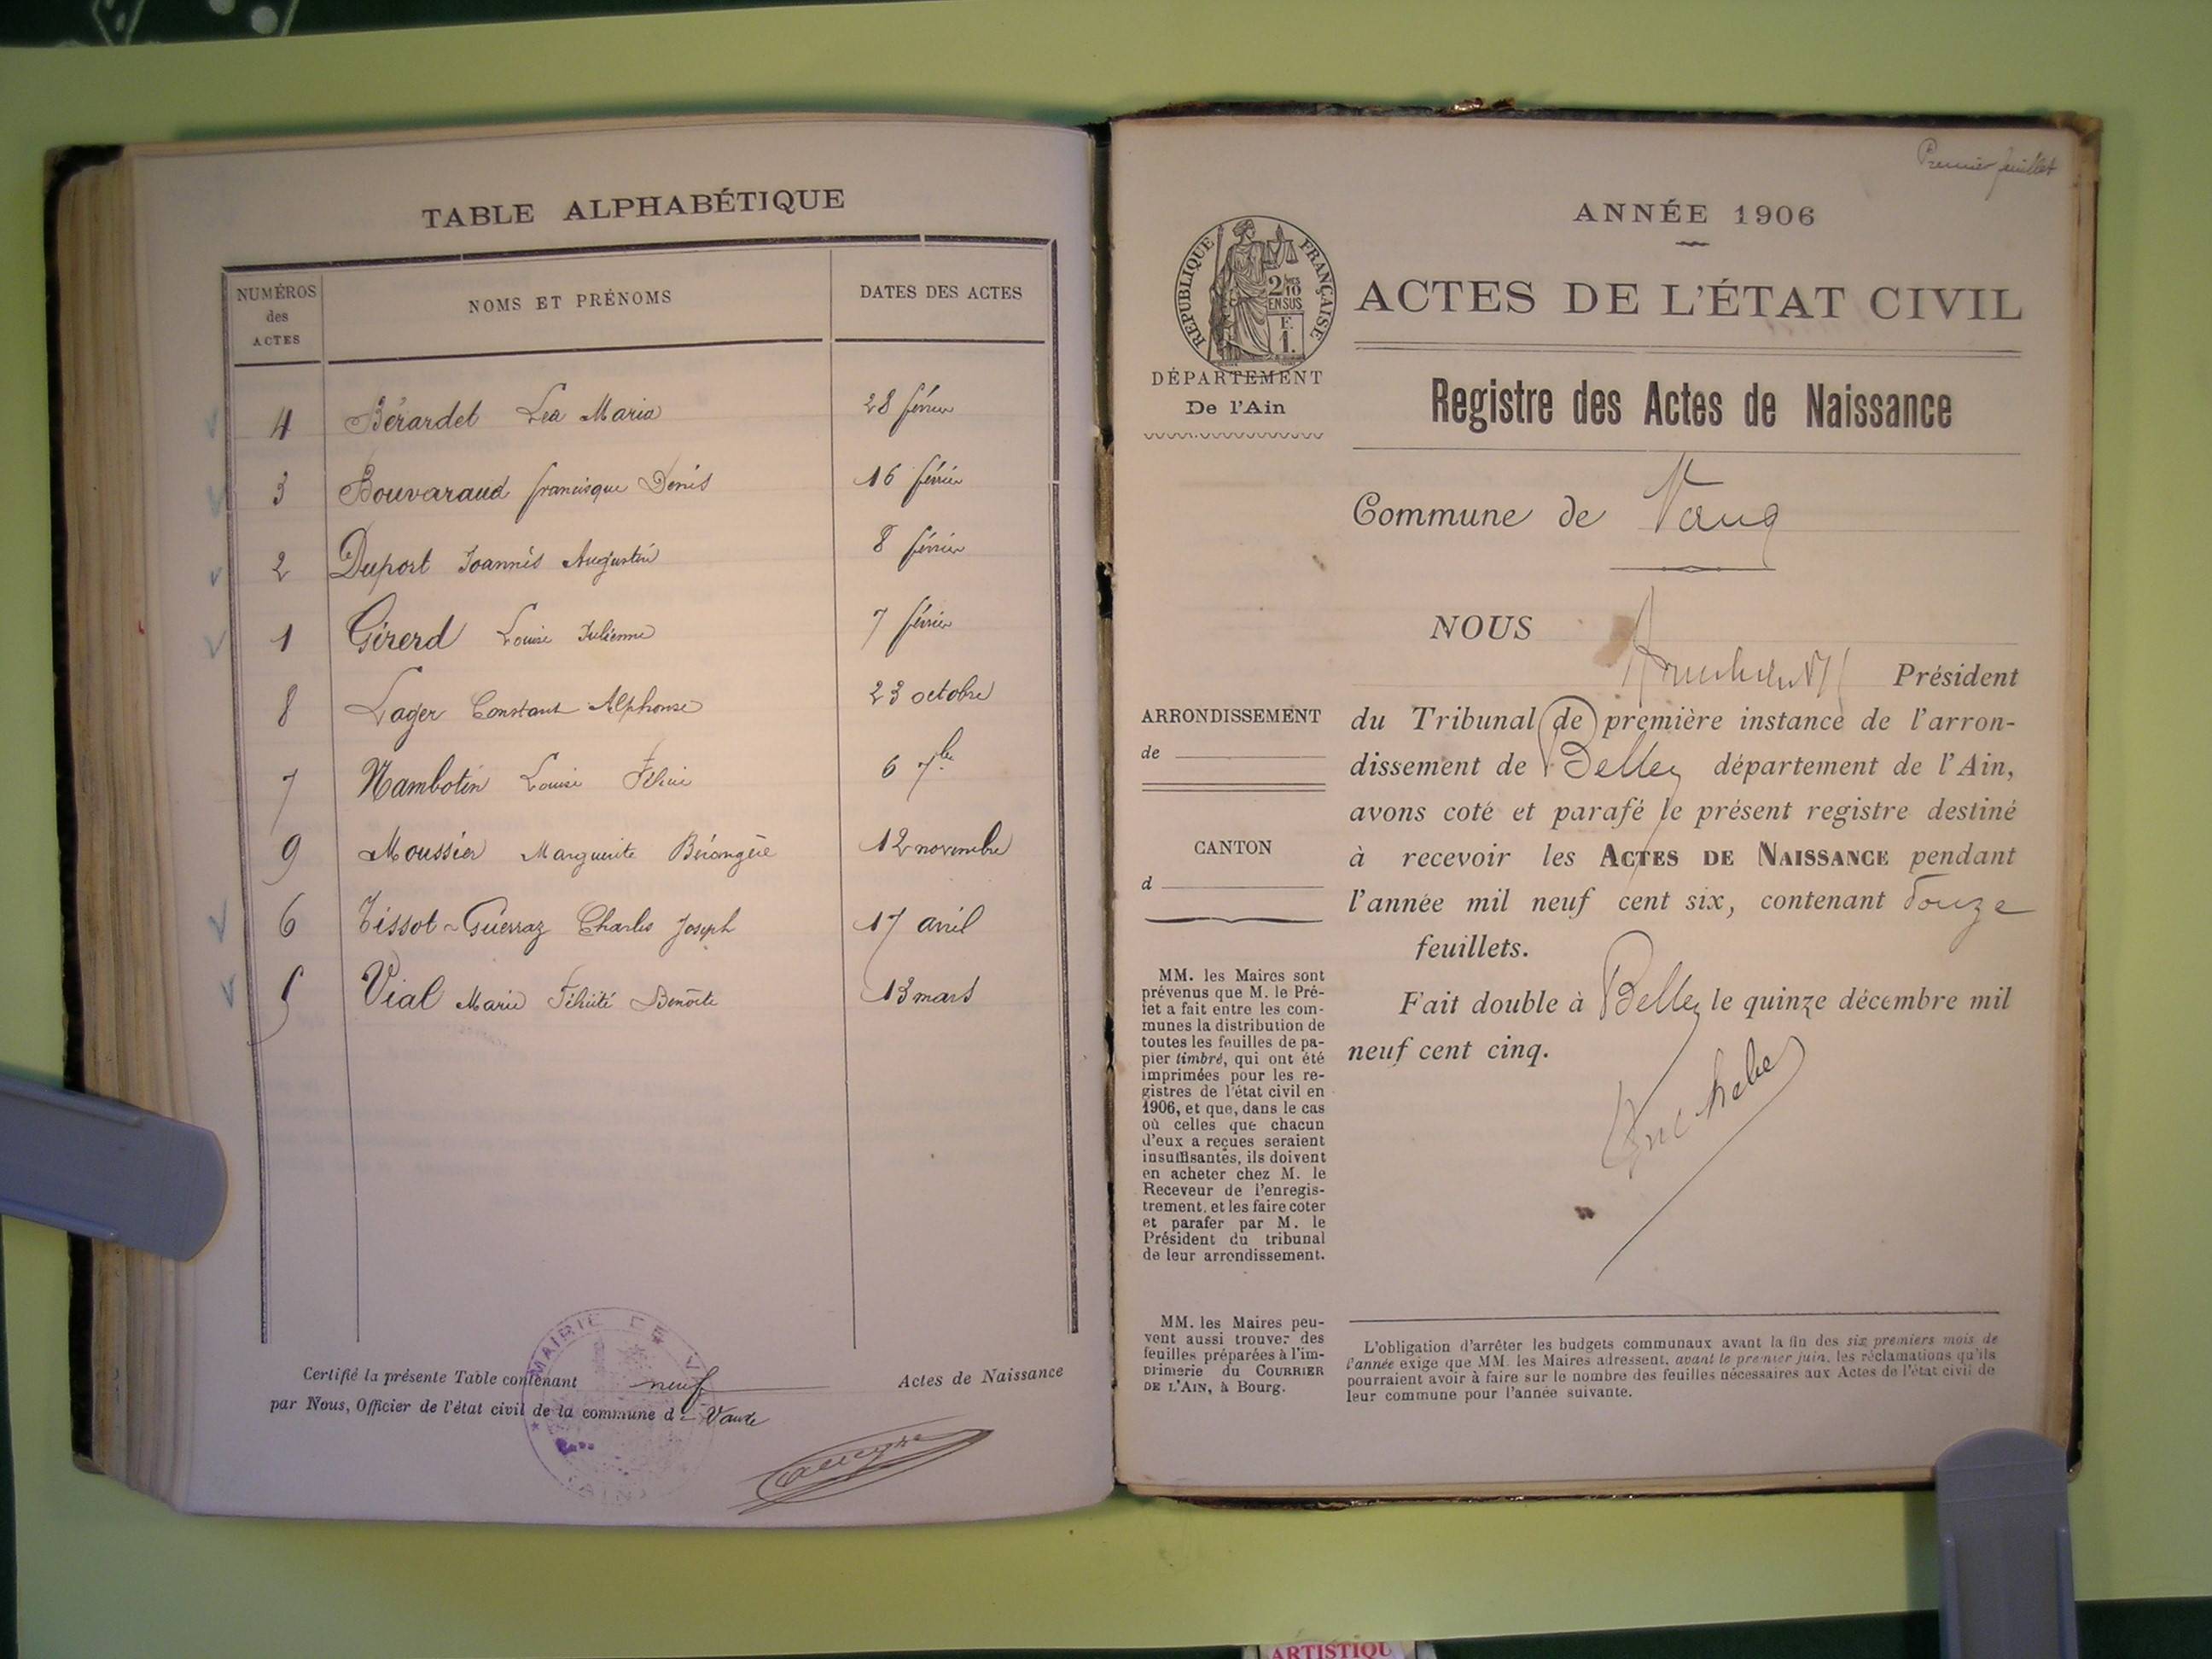 TABLE ALPHABÉTIQUE
NUMÉROS
des
ACTES
NOMS ET PRÉNOMS
DATES DES ACTES
4 Bérardet Lea Maria 28 février
3 Bouvaraud francisque Denis 16 février
2 Duport Joannès Augustin 8 février
1 Girerd Louise Julienne 7 février
8 Lager Constant Alphonse 23 octobre
7 Mambotin Louise 6 7bre
9 Moussier Marguerite Bérangère 12 novembre
6 Tissot-Guerraz Charles Joseph 17 avril
5 Vial Marie Félicité Benoîte 13 mars
Certifié la présente Table contenant neuf Actes de Naissance
par Nous, Officier de l'état civil de la commune d
MAIRIE DE V
AIN
Premier feuillet
ANNÉE 1906
RÉPUBLIQUE FRANÇAISE
2 MES
10
EN SUS
F.
1.
ACTES DE L'ÉTAT CIVIL
DÉPARTEMENT
De l'Ain
Registre des Actes de Naissance
Commune de
NOUS
Président
ARRONDISSEMENT
de
CANTON
d
du Tribunal de première instance de l'arron-
dissement de Belley département de l'Ain,
avons coté et parafé le présent registre destiné
à recevoir les ACTES DE NAISSANCE pendant
l'année mil neuf cent six, contenant Douze
feuillets.
Fait double à Belley le quinze décembre mil
neuf cent cinq.
MM. les Maires sont
prévenus que M. le Pré-
fet a fait entre les com-
munes la distribution de
toutes les feuilles de pa-
pier timbré, qui ont été
imprimées pour les re-
gistres de l'état civil en
1906, et que, dans le cas
où celles que chacun
d'eux a reçues seraient
insuffisantes, ils doivent
en acheter chez M. le
Receveur de l'enregis-
trement, et les faire coter
et parafer par M. le
Président du tribunal
de leur arrondissement.
MM. les Maires peu-
vent aussi trouver des
feuilles préparées à l'im-
primerie du COURRIER
DE L'AIN, à Bourg.
L'obligation d'arrêter les budgets communaux avant la fin des six premiers mois de
l'année exige que MM. les Maires adressent, avant le premier juin, les réclamations qu'ils
pourraient avoir à faire sur le nombre des feuilles nécessaires aux Actes de l'état civil de
leur commune pour l'année suivante.
ARTISTIQU